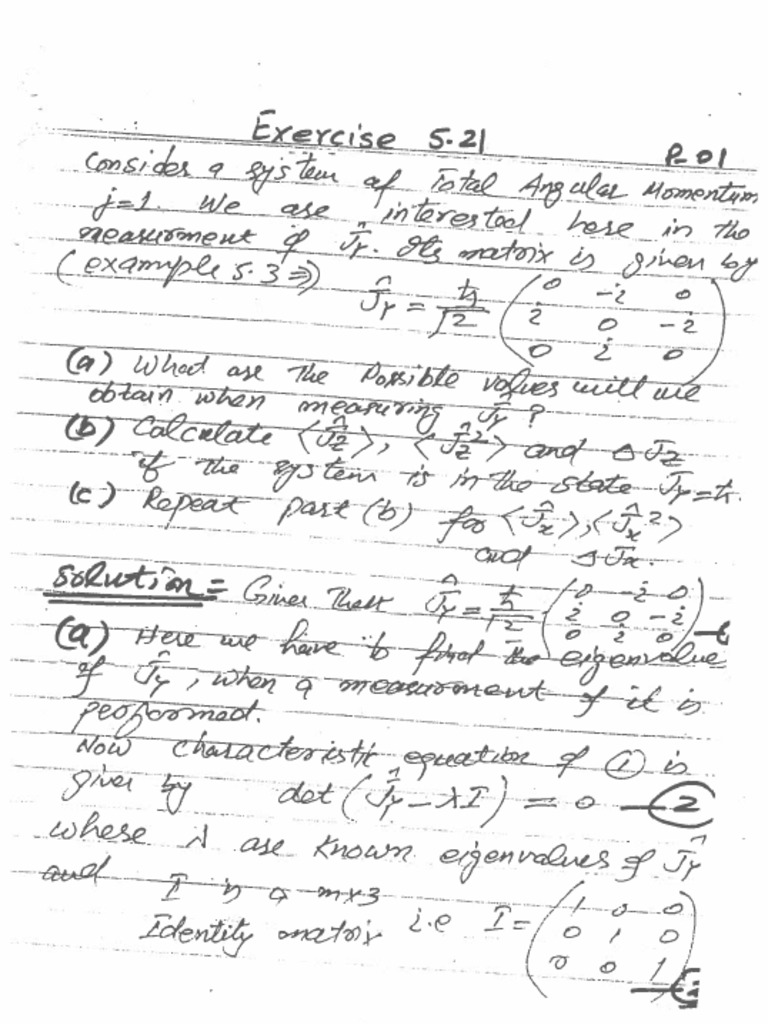 Exercise 5.21
P-01
Consider a system of Total Angular Momentum
j=1. We are interested here in the
measurment of Ĵy. Its matrix is given by
(example 5.3⇒) Ĵy = ħ/√2 (0 -i 0
i 0 -i
0 i 0)
(a) What are the Possible values will we
obtain when measuring Ĵy?
(b) Calculate ⟨Ĵz⟩, ⟨Ĵz²⟩ and ΔJz
if the system is in the state Jy=ħ.
(c) Repeat part (b) for ⟨Ĵx⟩, ⟨Ĵx²⟩
and ΔJx.
Solution = Given That Ĵy = ħ/√2 (0 -i 0
i 0 -i
0 i 0)
(a) Here we have to find the eigenvalue
of Ĵy, when a measurment of it is
performed.
Now characteristic equation of ① is
given by det(Ĵy - λI) = 0 — ②
where λ are known eigenvalues of Ĵy
and I is a mx3
Identity matrix i.e I = (1 0 0
0 1 0
0 0 1)